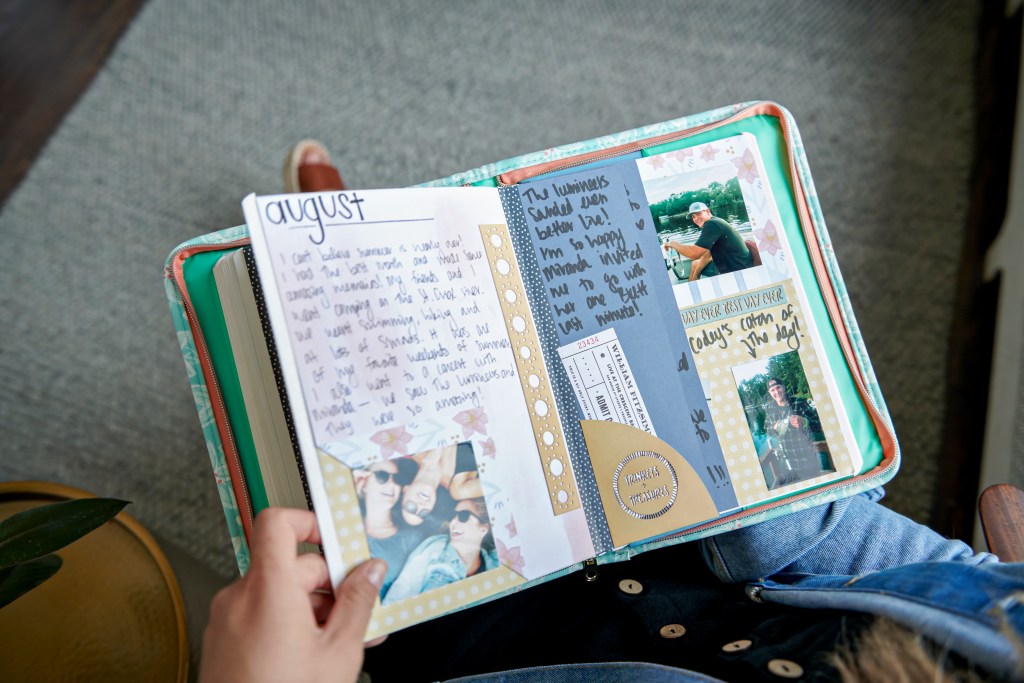 august
I can't believe summer is nearly over!
I had the best month and made some
amazing memories! My friends and I
went camping on the St. Croix river.
We went swimming, hiking and
at lots of s'mores. It was one
of my favorite weekends of summer.
I also went to a concert with
Miranda - we saw The Lumineers and
They were so amazing!
The Lumineers
sounded even
better live!
I'm so happy
miranda invited
me to go with
her one
last minute!
23434
WILLIAM FITZSIM
LIVE AT THE CRESCENT
ADMIT
TRINKETS
+
TREASURES
DAY EVER BEST DAY EVER
Cody's catch of
the day!